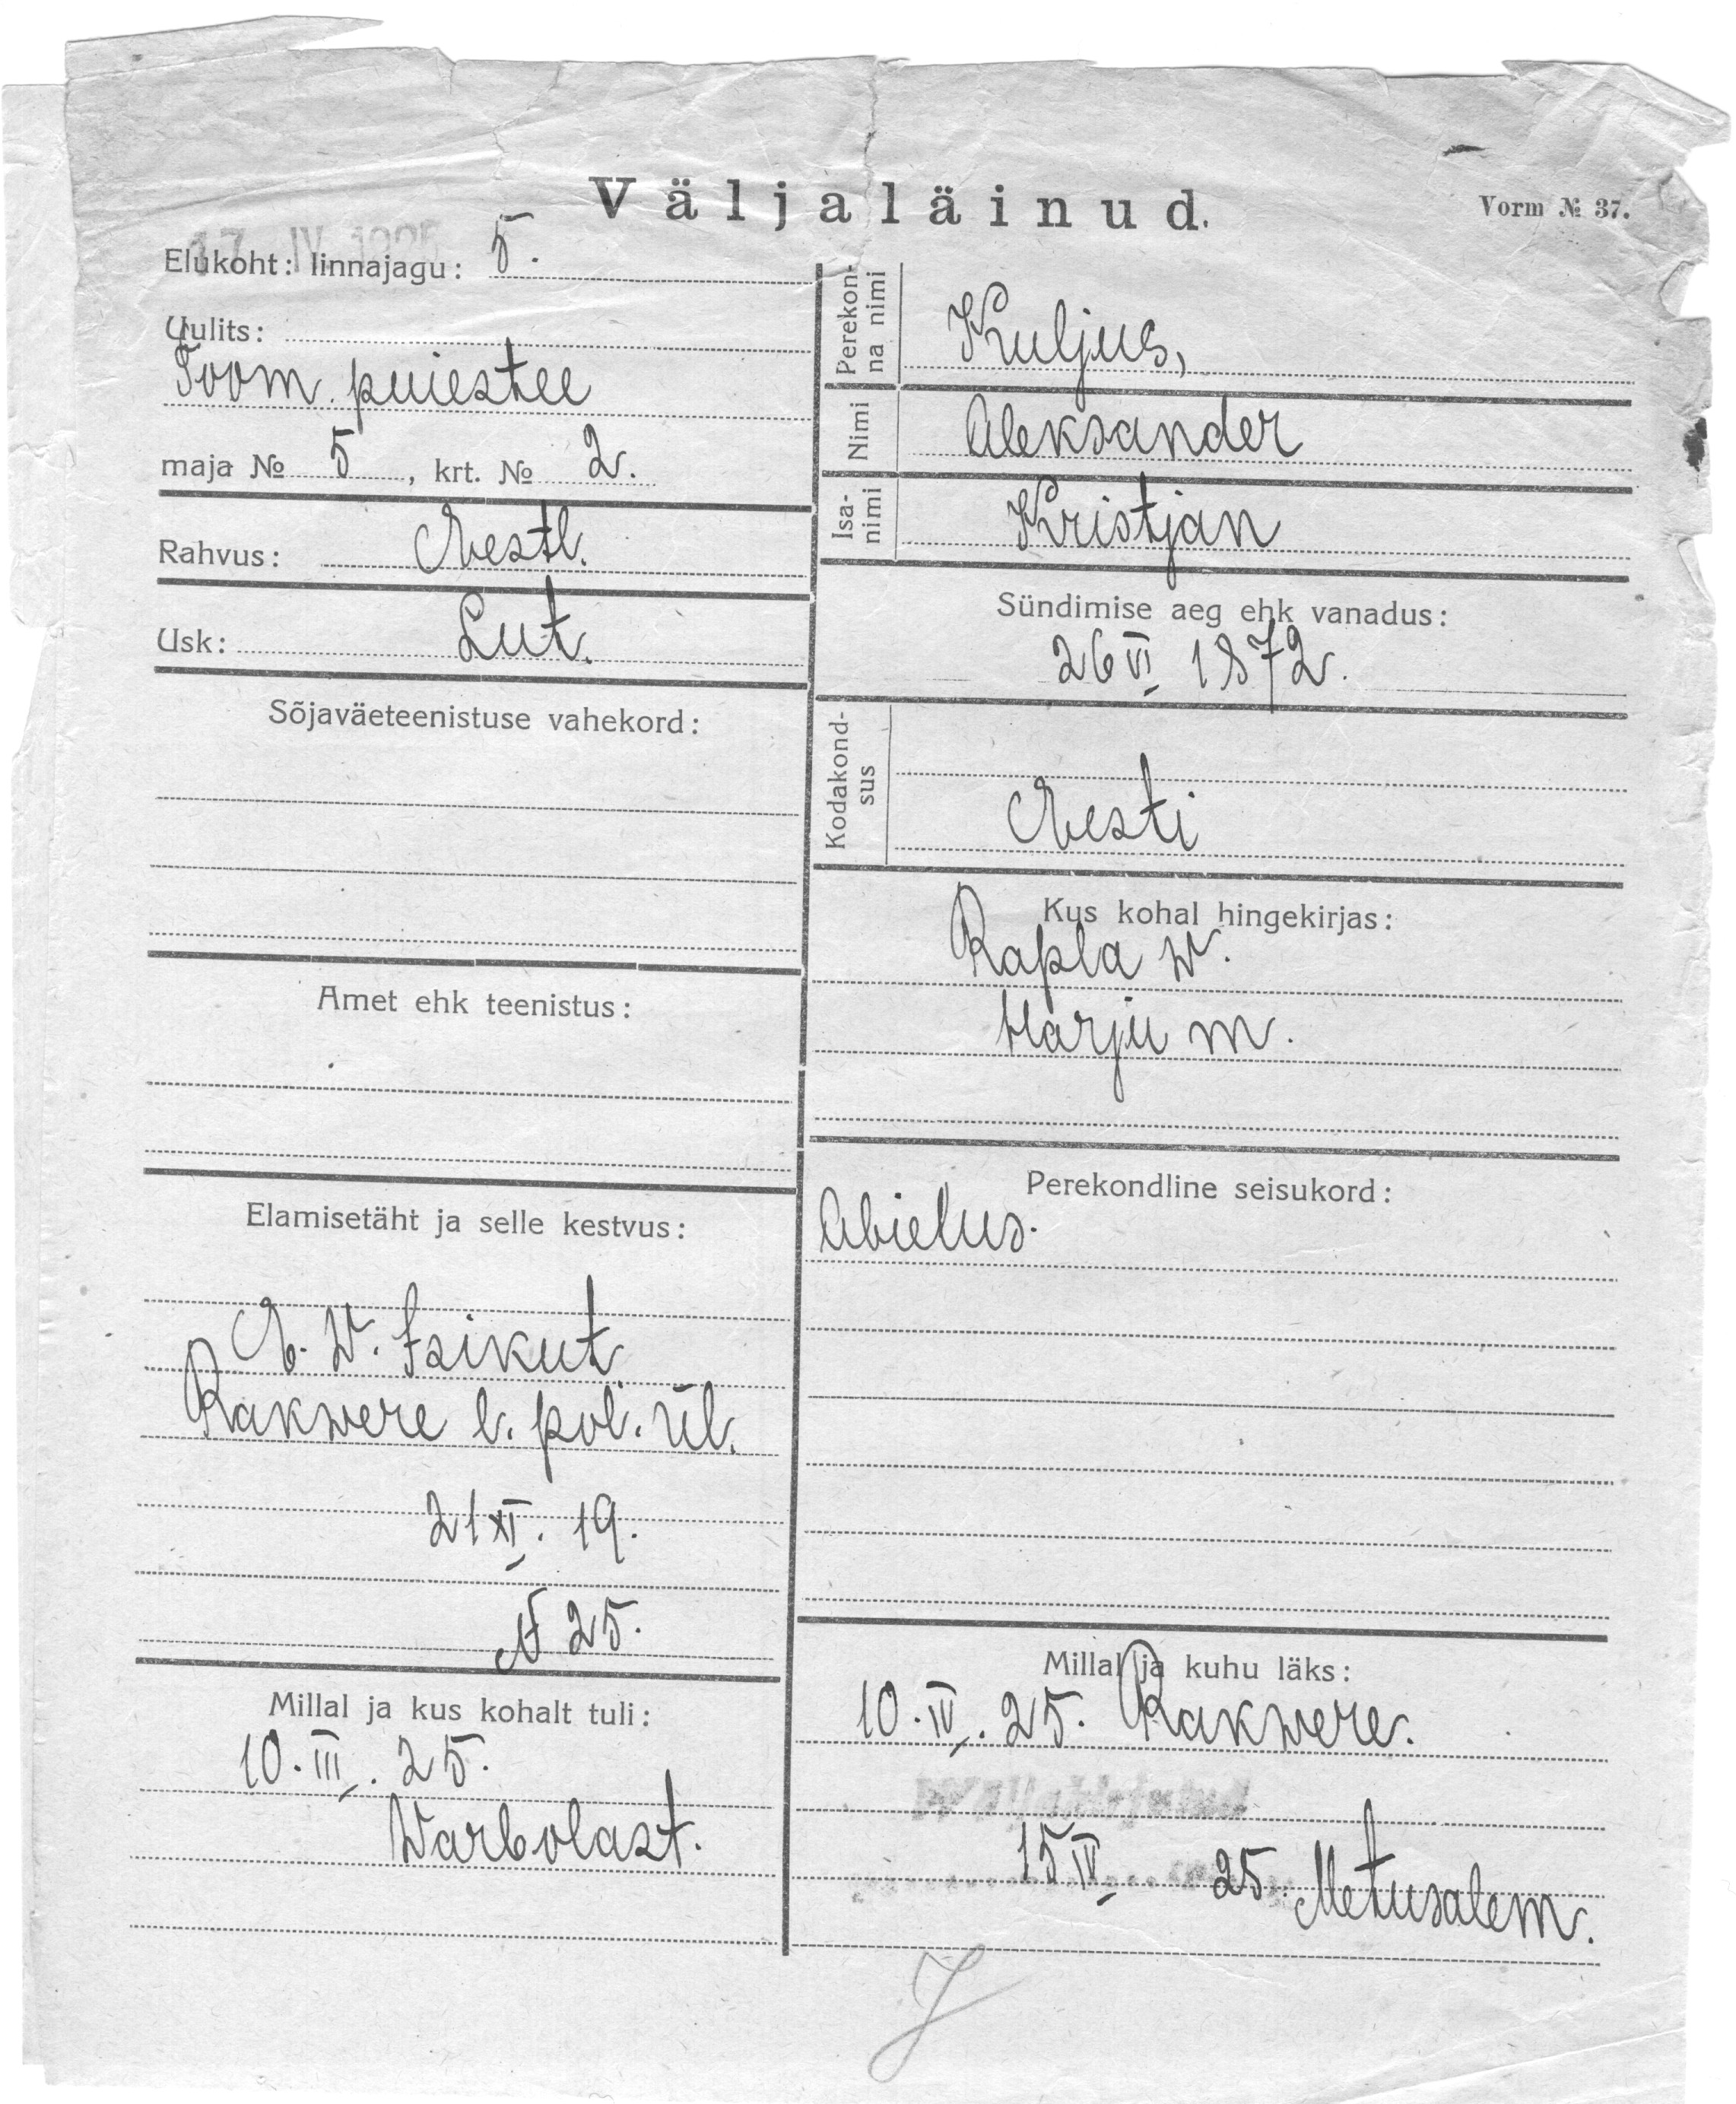 Väljaläinud.
Vorm № 37.
17. IV 1925
Elukoht: linnajagu: 5.
Uulits:
Toom. puiestee
maja № 5, krt. № 2.
Rahvus: Eestl.
Usk: Lut.
Sõjaväeteenistuse vahekord:
Amet ehk teenistus:
Elamisetäht ja selle kestvus:
E. W. Isikut.
Rakwere l. pol. ül.
21 XI. 19.
N 25.
Millal ja kus kohalt tuli:
10. III. 25.
Warbolast.
Perekon-
na nimi
Kuljus,
Nimi
Aleksander
Isa-
nimi
Kristjan
Sündimise aeg ehk vanadus:
26 VI 1872.
Kodakond-
sus
Eesti
Kus kohal hingekirjas:
Rapla w.
Harju m.
Perekondline seisukord:
Abielus.
Millal ja kuhu läks:
10. IV. 25. Rakwere.
15 IV 25. Metusalem.